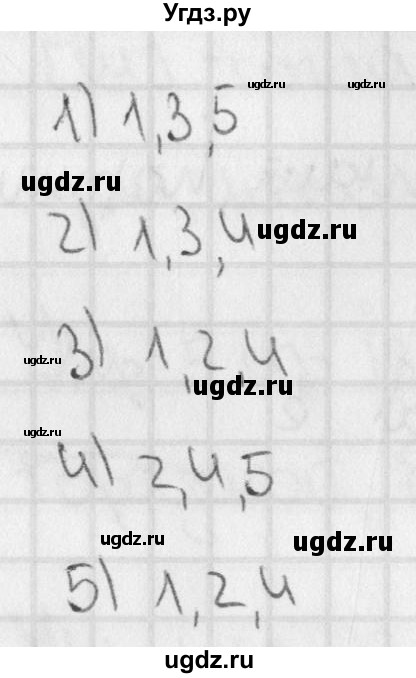 Угдз.ру
ugdz.ru ugdz.ru
1) 1,3,5
ugdz.ru
2) 1,3,4 ugdz.ru
3) 1,2,4
ugdz.ru
ugdz.ru
ugdz.ru
4) 2,4,5
ugdz.ru ugdz.ru
5) 1,2,4
ugdz.ru